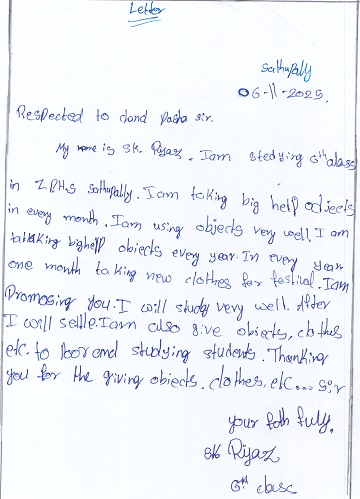 Letter
Sathupally
06-11-2025.
Respected to dand Pasha sir.
My name is SK. Riyaz. I am stedying 6th class
in ZPHS Sathupally. I am taking big help objects
in every month. I am using objects very well. I am
taking big help objects every year. In every year
one month taking new clothes for festival. I am
Promosing you. I will study very well. After
I will settle. I am also give objects, clothes
etc. to Poor and studying students. Thanking
you for the giving objects, clothes, etc... sir
your foth fully,
SK Riyaz
6th class